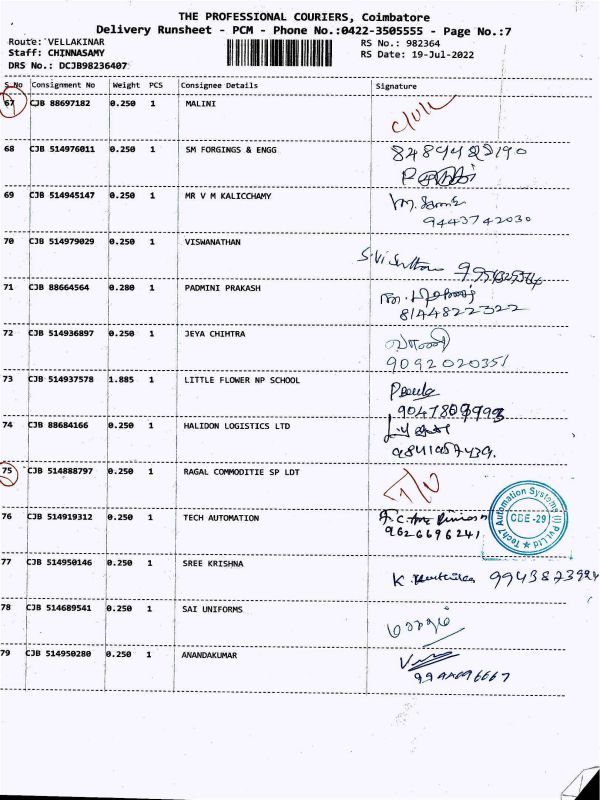 THE PROFESSIONAL COURIERS, Coimbatore
Delivery Runsheet - PCM - Phone No.:0422-3505555 - Page No.:7
Route: VELLAKINAR RS No.: 982364
Staff: CHINNASAMY RS Date: 19-Jul-2022
DRS No.: DCJB98236407
S.No Consignment No Weight PCS Consignee Details Signature
67 CJB 88697182 0.250 1 MALINI
68 CJB 514976011 0.250 1 SM FORGINGS & ENGG
69 CJB 514945147 0.250 1 MR V M KALICCHAMY
9443742030
70 CJB 514979029 0.250 1 VISWANATHAN
71 CJB 88664564 0.280 1 PADMINI PRAKASH
8144822322
72 CJB 514936897 0.250 1 JEYA CHIHTRA
9092020351
73 CJB 514937578 1.885 1 LITTLE FLOWER NP SCHOOL
74 CJB 88684166 0.250 1 HALIDON LOGISTICS LTD
9841057439.
75 CJB 514888797 0.250 1 RAGAL COMMODITIE SP LDT
76 CJB 514919312 0.250 1 TECH AUTOMATION
9626696241
Tech7 Automation Systems (I) Pvt Ltd
CBE-29
77 CJB 514950146 0.250 1 SREE KRISHNA
9943873924
78 CJB 514689541 0.250 1 SAI UNIFORMS
79 CJB 514950280 0.250 1 ANANDAKUMAR